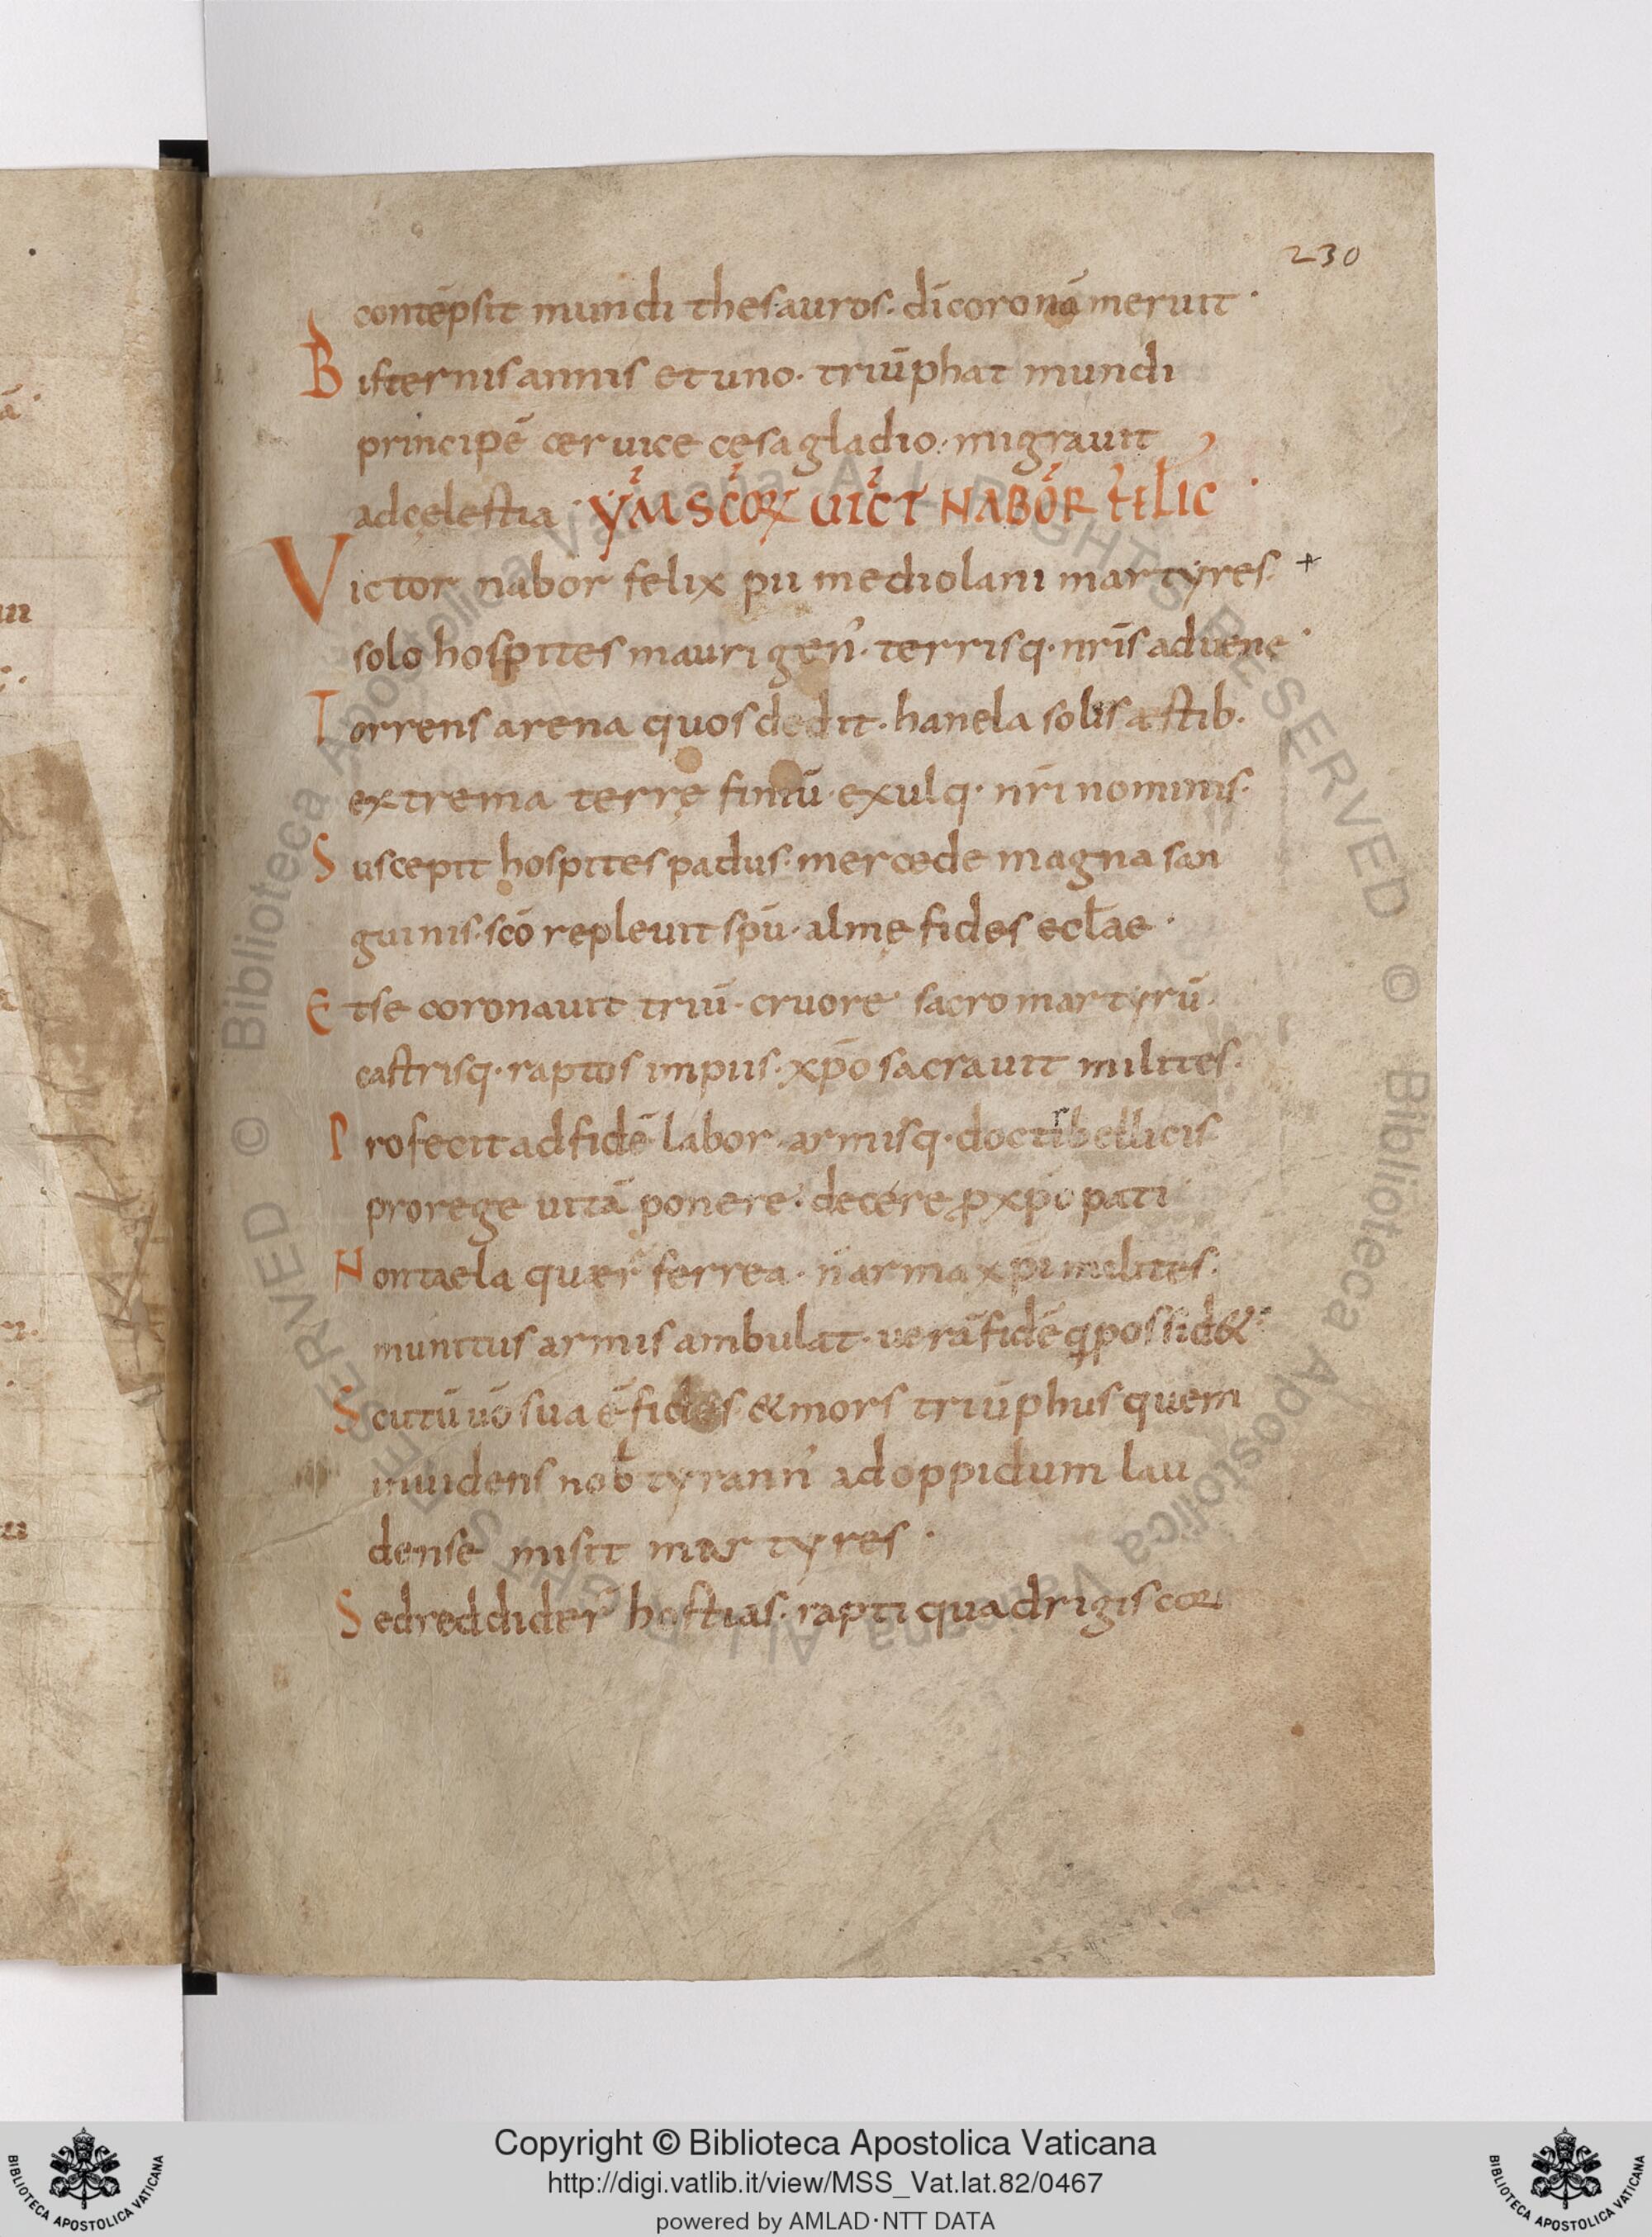 230
contēpsit mundi thesauros· di coronā meruit·
Bis ternis annis et uno· triūphat mundi
principē ceruice cęsa gladio· migrauit
ad cęlestia· YM̄ SC̄OR̄ UIC̄T NABOR̄ FELIC·
Victor nabor felix pii mediolani martyres· +
solo hospites mauri gen̄· terrisq· nr̄is aduenę·
Torrens arena quos dedit· hanela solis æstib·
extrema terrę finiū· exulq· nr̄i nominis·
Suscepit hospites padus· mercede magna san
guinis· sc̄o repleuit sp̄u· almę fides eccłae·
Et se coronauit triū· cruore sacro martyrū·
castrisq· raptos impiis· xp̄o sacrauit milites·
Profecit ad fidē labor armisq· docti bellicis
pro rege uitā ponere· decere ꝓ xp̄o pati
Non tæla quær̄ ferrea· n̄ arma xp̄i milites·
munitus armis ambulat· uerā fidē q possid&·
Scutū uō sua ē fides & mors triūphus quem
inuidens nob tyrann' ad oppidum lau
dense misit martyres·
Sed reddider̄ hostias· rapti quadrigis cor
Copyright © Biblioteca Apostolica Vaticana
http://digi.vatlib.it/view/MSS_Vat.lat.82/0467
powered by AMLAD·NTT DATA
BIBLIOTECA APOSTOLICA VATICANA
BIBLIOTECA APOSTOLICA VATICANA